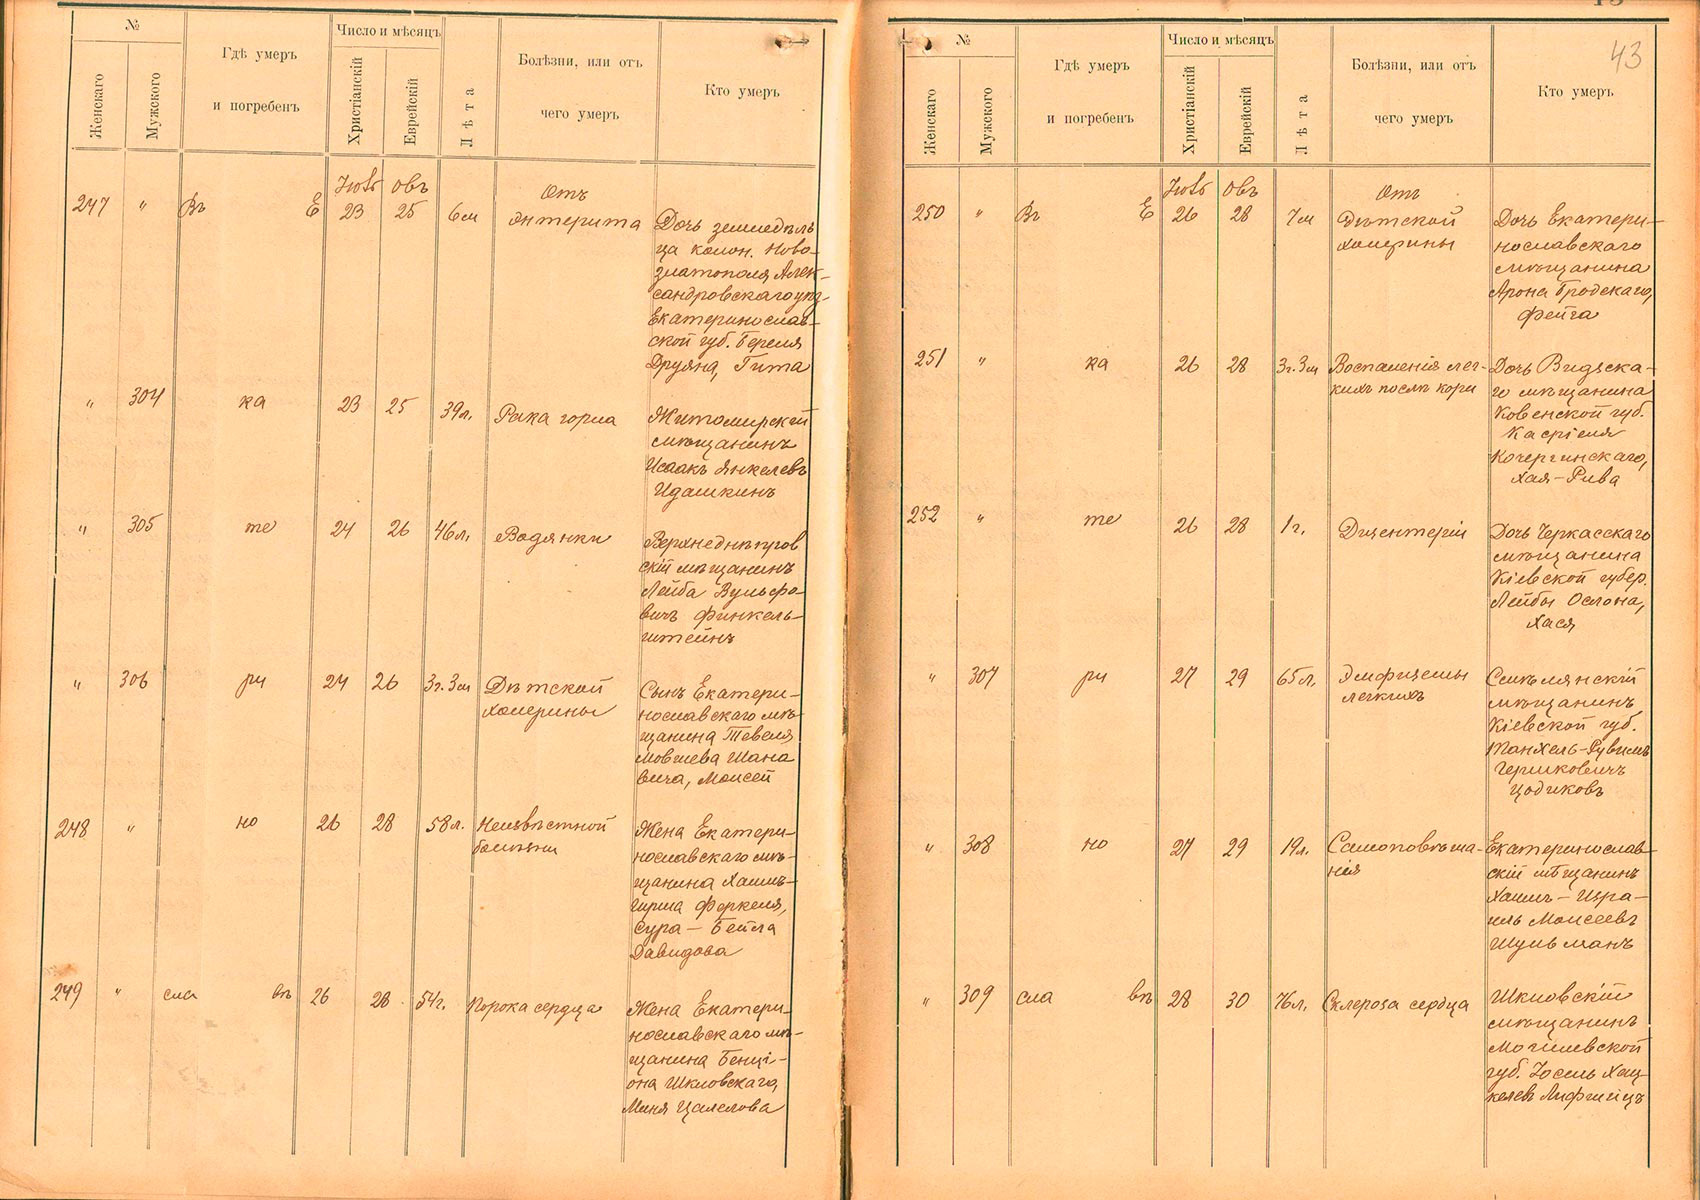 №
Женскаго
Мужского
Гдѣ умеръ
и погребенъ
Число и мѣсяцъ
Христіанскій
Еврейскій
Лѣта
Болѣзни, или отъ
чего умеръ
Кто умеръ
Іюль Овъ
247 " Въ Е 23 25 6 м
Отъ
энтерита
Дочь земледѣль
ца колон. Ново-
златополя Алек-
сандровскаго уѣз.
Екатеринослав-
ской губ. Береля
Друяна, Гита
" 304 ка 23 25 39 л. Рака горла
Житомирскій
мѣщанинъ
Исаакъ Янкелевъ
Идашкинъ
" 305 те 24 26 46 л. Водянки
Верхнеднѣпров
скій мѣщанинъ
Лейба Вульфо-
вичъ Финкель-
штейнъ
" 306 ри 24 26 3 г. 3 м
Дѣтской
холерины
Сынъ Екатери-
нославскаго мѣ-
щанина Тевеля
Мовшева Шана
вича, Моисей
248 " но 26 28 58 л.
Неизвѣстной
болѣзни
Жена Екатери-
нославскаго мѣ-
щанина Хаимъ-
Гирша Феркеля,
Сура-Бейла
Давидова
249 " сла въ 26 28 54 г. Порока сердца
Жена Екатери-
нославскаго мѣ-
щанина Бенці-
она Шкловскаго,
Маня Цалелова
43
№
Женскаго
Мужского
Гдѣ умеръ
и погребенъ
Число и мѣсяцъ
Христіанскій
Еврейскій
Лѣта
Болѣзни, или отъ
чего умеръ
Кто умеръ
Іюль Овъ
250 " Въ Е 26 28 7 м
Отъ
Дѣтской
холерины
Дочь Екатери-
нославскаго
мѣщанина
Арона Бродскаго,
Фейга
251 " ка 26 28 3 г. 3 м
Воспаленія лег-
кихъ послѣ кори
Дочь Видзска-
го мѣщанина
Ковенской губ.
Касріеля
Кочергинскаго,
Хая-Рива
252 " те 26 28 1 г. Дизентеріи
Дочь Черкасскаго
мѣщанина
Кіевской губер.
Лейбы Ослона,
Хася
" 307 ри 27 29 65 л.
Эмфиземы
легкихъ
Смѣлянскій
мѣщанинъ
Кіевской губ.
Танхель-Рувимъ
Гершковичъ
Цодиковъ
" 308 но 27 29 19 л.
Самоповѣша-
нія
Екатеринослав-
скій мѣщанинъ
Хаимъ-Изра-
иль Моисеевъ
Шульманъ
" 309 сла въ 28 30 76 л. Склероза сердца
Шкловскій
мѣщанинъ
Могилевской
губ. Іосель Хац-
келевъ Лифшицъ